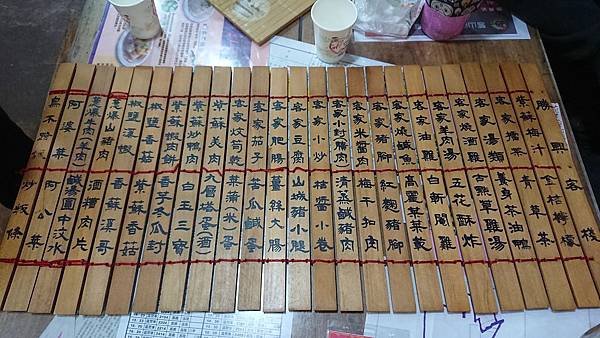 勝興客棧
紫蘇梅汁 金桔檸檬
客家擂茶 青草茶
客家湯麵 養身茶油鴨
客家羊肉湯 古典草雞湯
客家燒酒雞 五花酥炸
客家油雞 白斬閹雞
客家燒鹹魚 高麗菜菜乾
客家豬腳 紅麴豬腳
客家米醬肉 梅干扣肉
客家小封腸肉 清蒸鹹豬肉
客家小炒 桔醬小卷
客家豆腐 山城豬小腿
客家肥腸 薑絲大腸
客家茄子 苦瓜鹹蛋
客家炆筍乾 菜蒲(米)蛋
紫蘇羊肉 九層塔蛋(酒)
紫蘇炒鴨肉 白玉三寶
紫蘇蝦肉餅 香芋冬瓜封
椒鹽香菇 紫蘇香菇
椒鹽溪蝦 香蘇溪哥
蔥爆山豬肉 酒糟肉片
蔥爆羊肉(羊肉) 鹹湯圓中炆水
阿婆菜 阿公菜
烏不溜 炒粄條